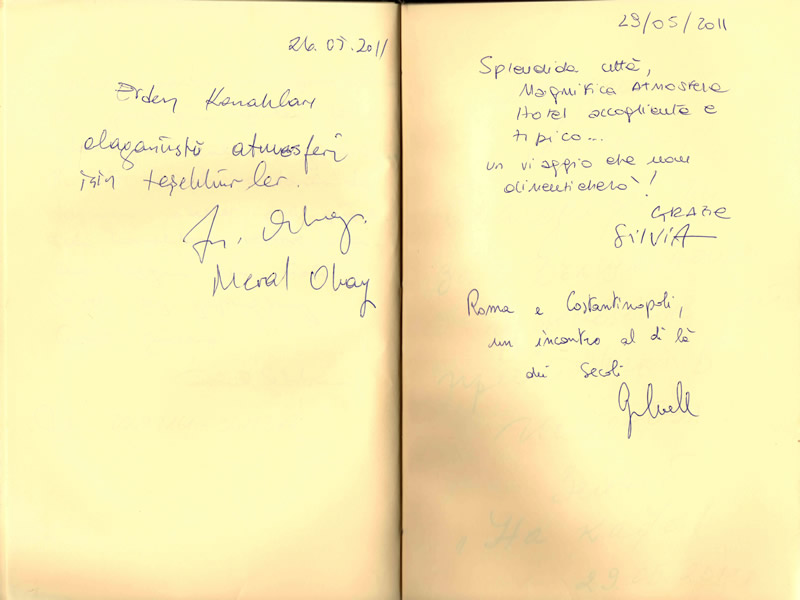 26.05.2011
Erden Konakları
olağanüstü atmosferi
için teşekkürler.
Meral Okay
29/05/2011
Splendida città,
Magnifica atmosfera
Hotel accogliente e
tipico...
un viaggio che non
dimenticherò!
GRAZIE
SILVIA
Roma e Costantinopoli,
un incontro al di là
dei secoli